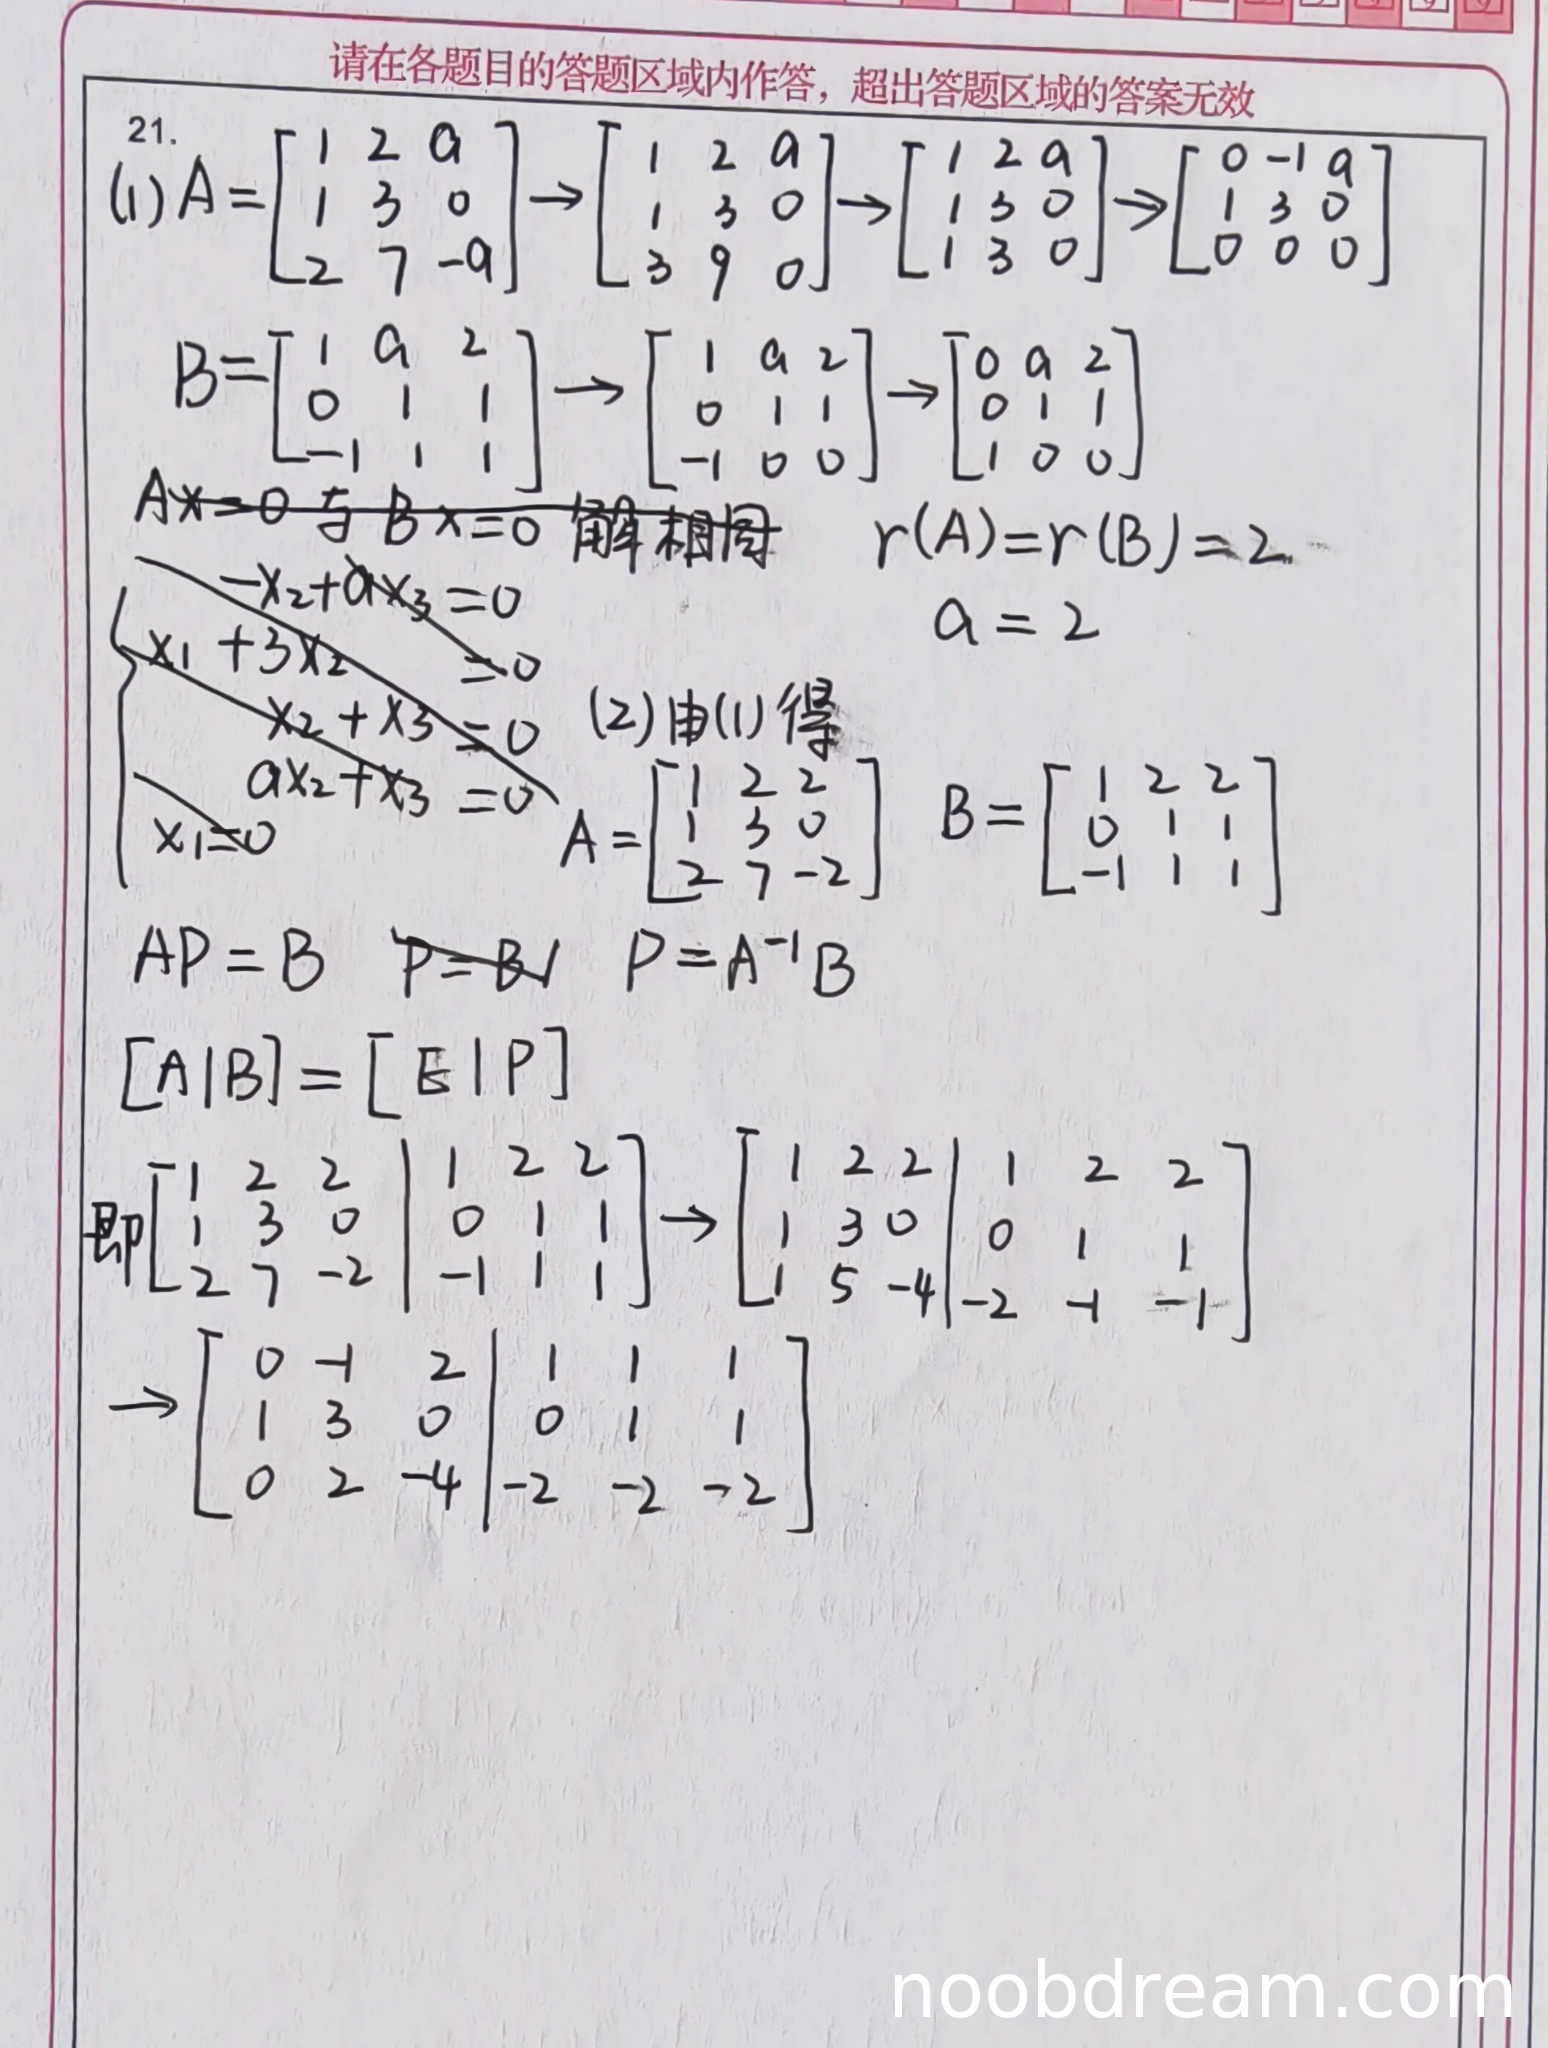 请在各题目的答题区域内作答，超出答题区域的答案无效
21.
(1) A = [1 2 a; 1 3 0; 2 7 -a] → [1 2 a; 1 3 0; 3 9 0] → [1 2 a; 1 3 0; 1 3 0] → [0 -1 a; 1 3 0; 0 0 0]
B = [1 a 2; 0 1 1; -1 1 1] → [1 a 2; 0 1 1; -1 0 0] → [0 a 2; 0 1 1; 1 0 0]
Ax=0 与 Bx=0 解相同 r(A)=r(B)=2
-x₂+ax₃=0
a=2
x₁+3x₂=0
x₂+x₃=0
ax₂+x₃=0
x₁=0
(2) 由(1)得
A = [1 2 2; 1 3 0; 2 7 -2] B = [1 2 2; 0 1 1; -1 1 1]
AP=B P=B P=A⁻¹B
[A|B]=[E|P]
即 [1 2 2 | 1 2 2; 1 3 0 | 0 1 1; 2 7 -2 | -1 1 1] → [1 2 2 | 1 2 2; 1 3 0 | 0 1 1; 1 5 -4 | -2 -1 -1]
→ [0 -1 2 | 1 1 1; 1 3 0 | 0 1 1; 0 2 -4 | -2 -2 -2]
noobdream.com